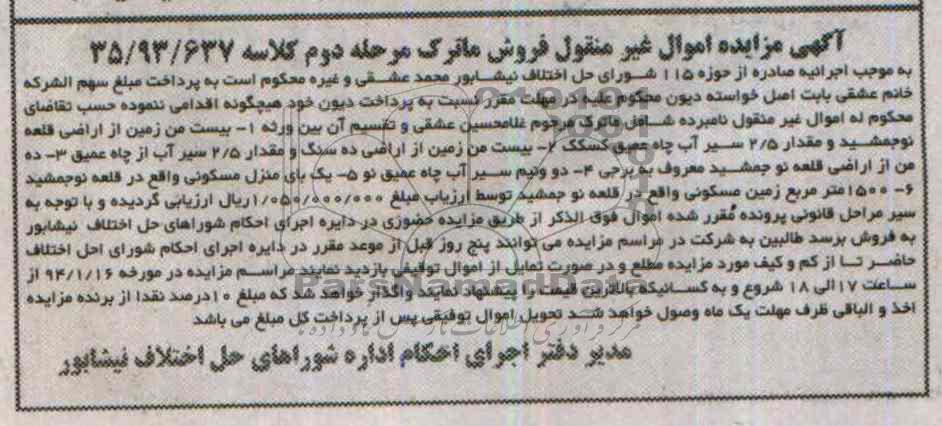 آگهی مزایده اموال غیر منقول فروش ماترک مرحله دوم کلاسه ۳۵/۹۳/۶۳۷
به موجب اجرائیه صادره از حوزه ۱۱۵ شورای حل اختلاف نیشابور محمد عشقی و غیره محکوم است به پرداخت مبلغ سهم الشرکه
خانم عشقی بابت اصل خواسته دیون محکوم علیه در مهلت مقرر نسبت به پرداخت دیون خود هیچگونه اقدامی ننموده حسب تقاضای
محکوم له اموال غیر منقول نامبرده شامل ماترک مرحوم غلامحسین عشقی و تقسیم آن بین ورثه ۱- بیست من زمین از اراضی قلعه
نوجمشید و مقدار ۲/۵ سیر آب چاه عمیق کسکک ۲- بیست من زمین از اراضی ده سنگ و مقدار ۲/۵ سیر آب از چاه عمیق ۳- ده
من از اراضی قلعه نو جمشید معروف به برجی ۴- دو ونیم سیر آب چاه عمیق نو ۵- یک بای منزل مسکونی واقع در قلعه نوجمشید
۶- ۱۵۰۰متر مربع زمین مسکونی واقع در قلعه نو جمشید توسط ارزیاب مبلغ ۱/۰۵۰/۰۰۰/۰۰۰ریال ارزیابی گردیده و با توجه به
سیر مراحل قانونی پرونده مقرر شده اموال فوق الذکر از طریق مزایده حضوری در دایره اجرای احکام شوراهای حل اختلاف نیشابور
به فروش برسد طالبین به شرکت در مراسم مزایده می توانند پنج روز قبل از موعد مقرر در دایره اجرای احکام شورای احل اختلاف
حاضر تا از کم و کیف مورد مزایده مطلع و در صورت تمایل از اموال توقیفی بازدید نمایند مراسم مزایده در مورخه ۹۴/۱/۱۶ از
ساعت ۱۷الی ۱۸ شروع و به کسانیکه بالاترین قیمت را پیشنهاد نمایند واگذار خواهد شد که مبلغ ۱۰درصد نقدا از برنده مزایده
اخذ و الباقی ظرف مهلت یک ماه وصول خواهد شد تحویل اموال توقیفی پس از پرداخت کل مبلغ می باشد
مدیر دفتر اجرای احکام اداره شوراهای حل اختلاف نیشابور
ParsNamadData